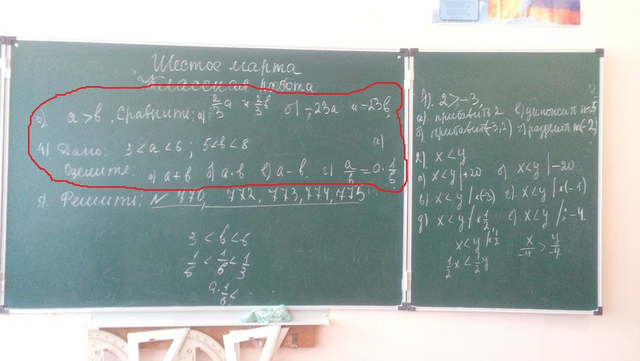 Шестое марта
Классная работа
3). a > b. Сравнить: а) 2/3 a и 2/3 b б) -23a и -23b
4) Дано: 3 < a < 6; 5 < b < 8
Оцените: а) a + b б) a · b в) a - b. г) a/b = a · 1/b
5). Решить: № 770, 772, 773, 774, 775
3 < b < 6
1/6 < 1/b < 1/3
a · 1/b <
1). 2 > -3,
а). прибавить 2 в) умножить на 5
б) прибавить(-3,2) г) разделить на(-2)
2) x < y
а) x < y / +20 б) x < y / -20
в) x < y / ×(-3) г). x < y / ×(-1)
д) x < y / × 1/2 е) x < y / : -4
x < y / × 1/2
1/2 x < 1/2 y
x/-4 > y/-4